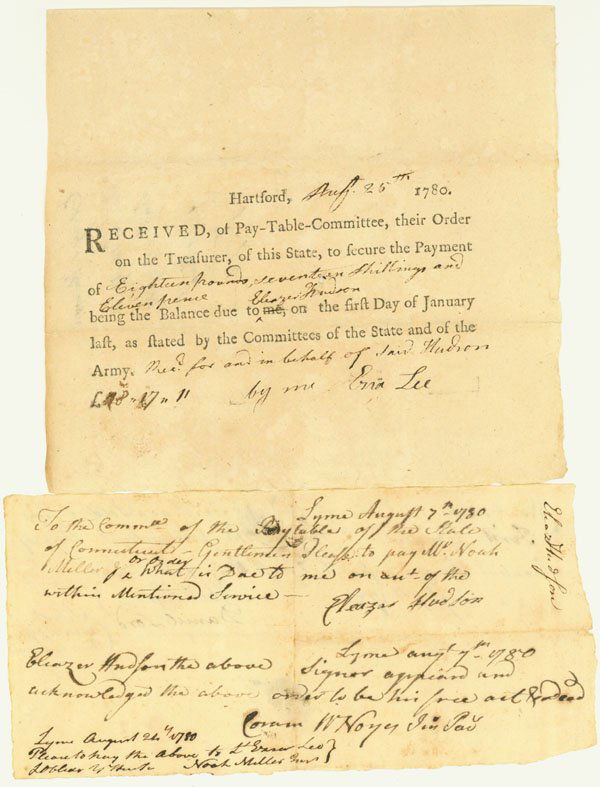 Hartford, Augt. 25th 1780.
RECEIVED, of Pay-Table-Committee, their Order
on the Treasurer, of this State, to secure the Payment
of Eighteen pounds, seventeen Shillings and
Eleven pence Eleazer Hudson
being the Balance due to me, on the first Day of January
last, as stated by the Committees of the State and of the
Army. Recd. for and in behalf of said Hudson
£18 " 17 " 11 by me Ezra Lee
Lyme August 7th 1780
To the Commtee of the Paytable of the State
of Connecticut - Gentlemen Please to pay Mr. Noah
Miller or order What is Due to me on act. of the
within Mentioned Service -
Eleazer Hudson
Lyme augt 7th 1780
Eleazer Hudson the above Signer appeard and
acknowledged the above order to be his free act & deed
Coram Wm Noyes Jus Pac
Lyme August 24th 1780
Please to pay the Above to Lt. Ezra Lee
Noah Miller